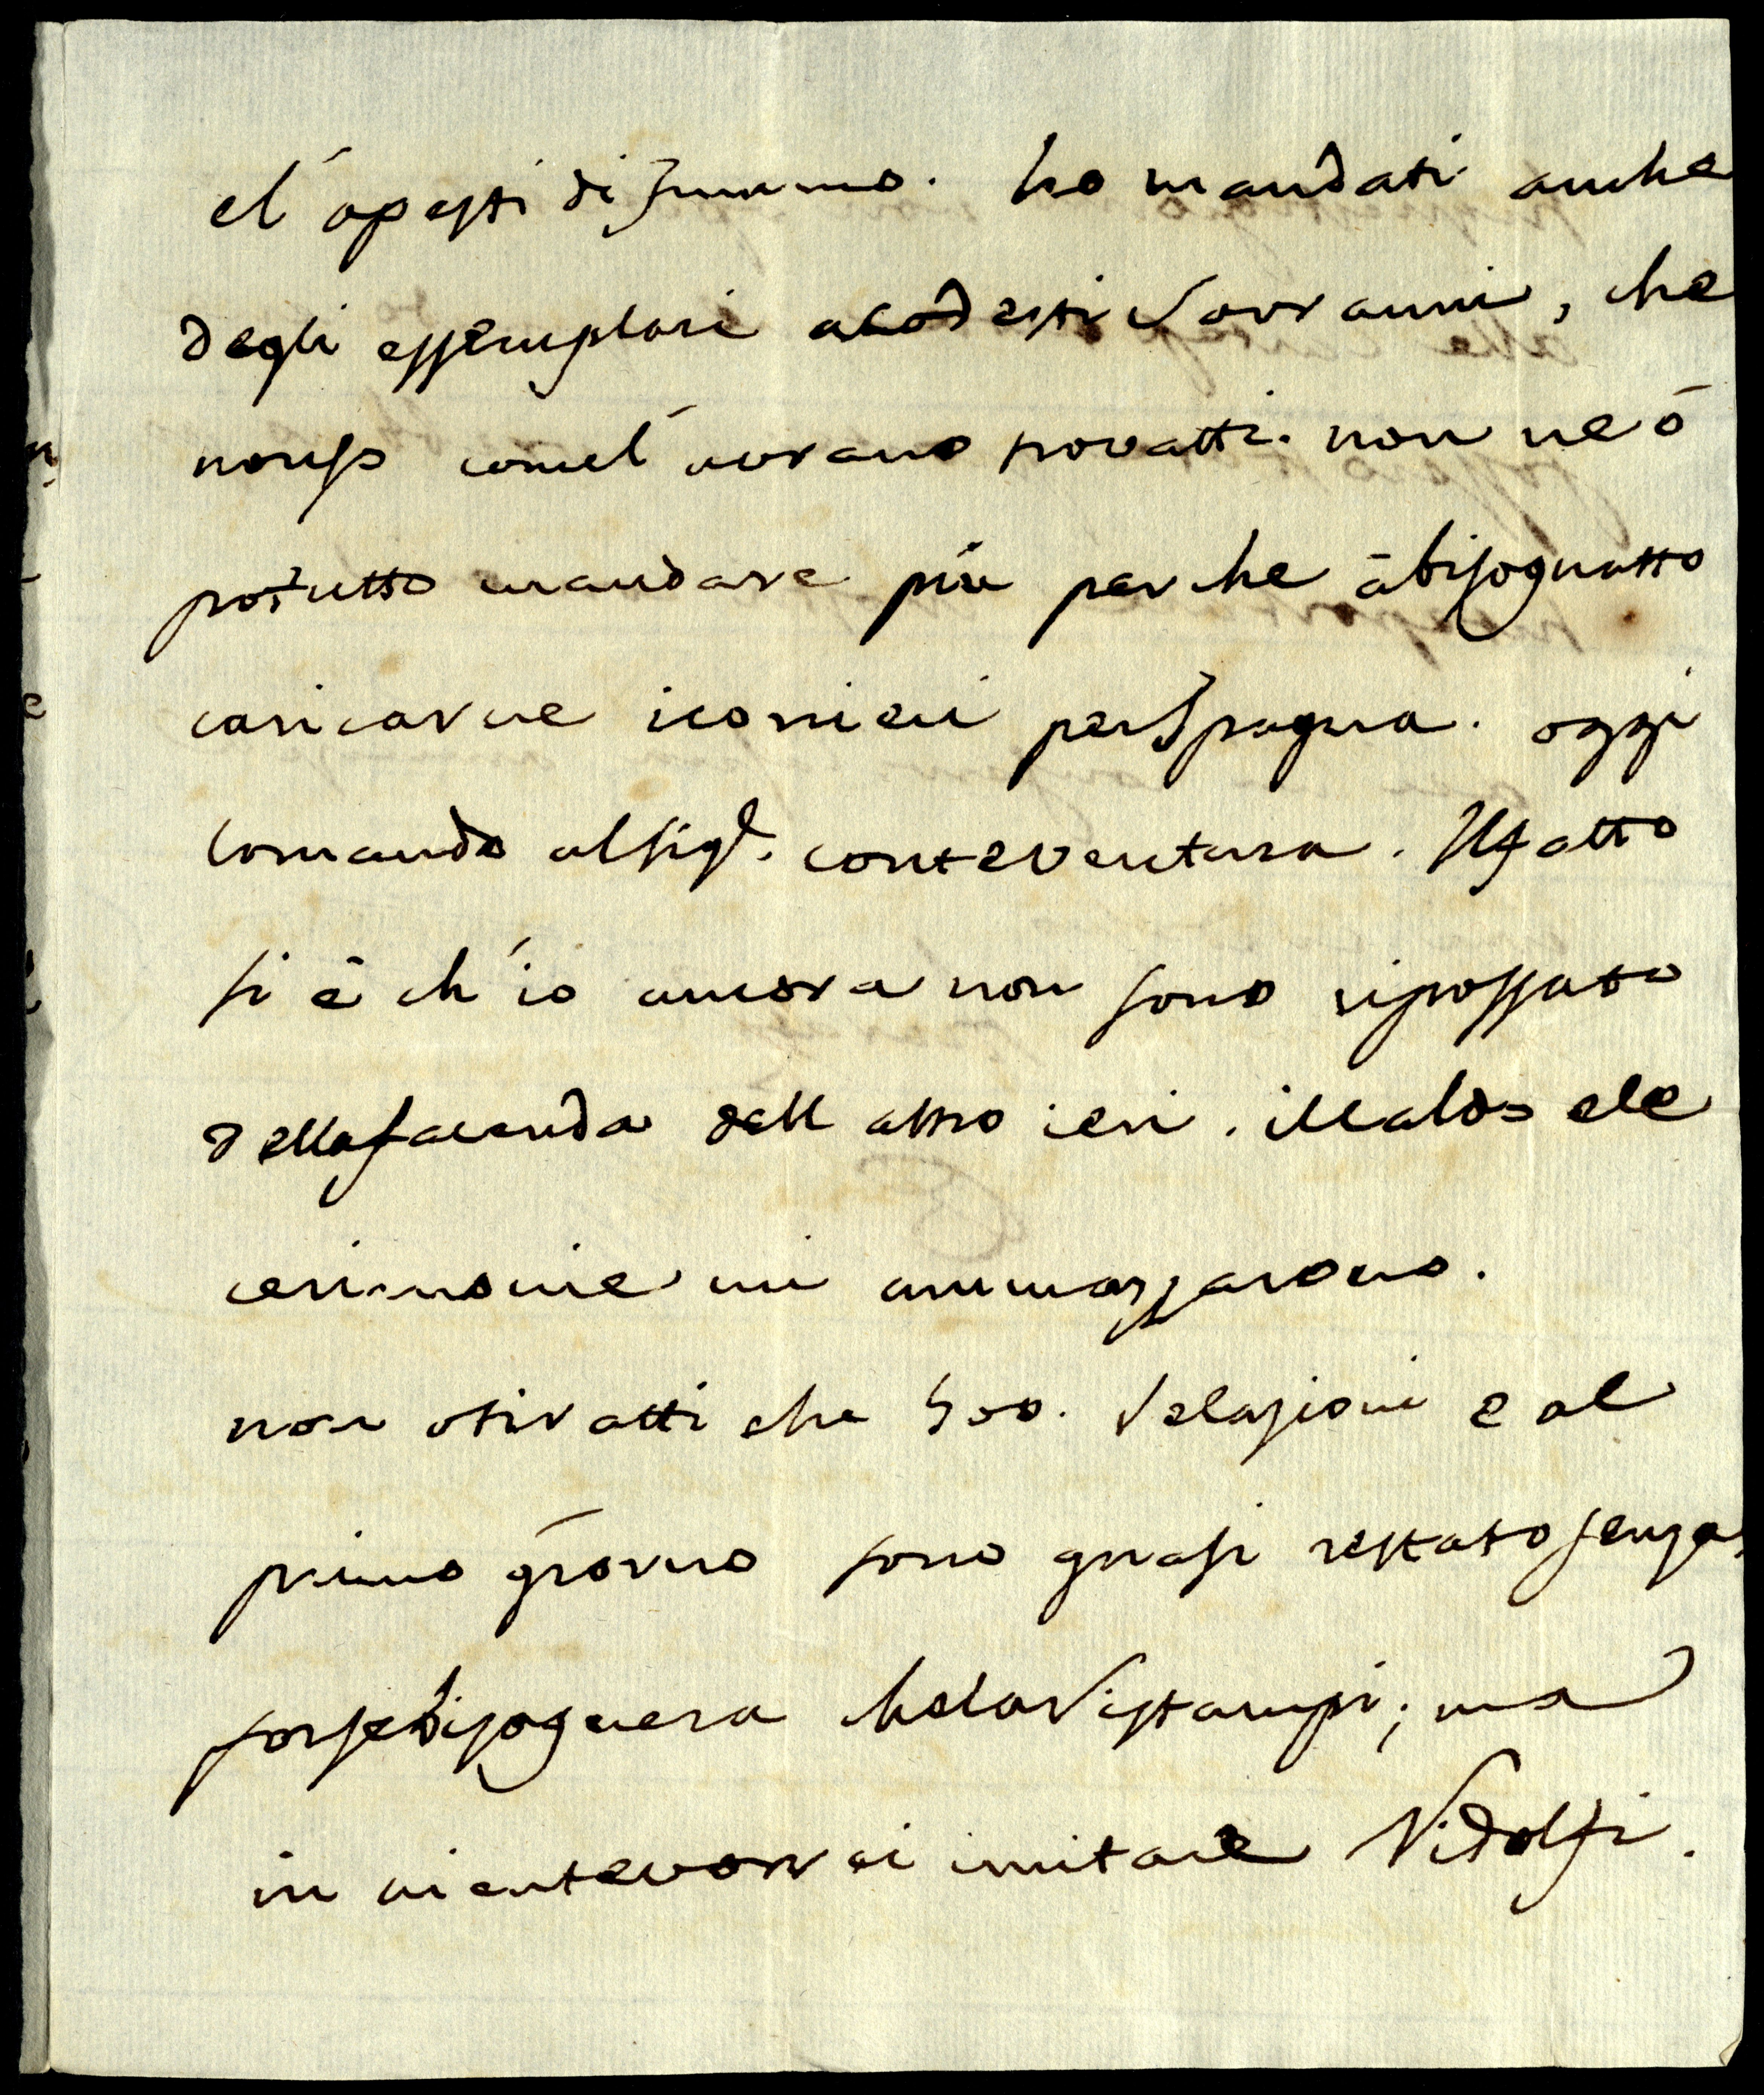 el' ópesti di fummo. ho mandati anche
degli essemplari acodesti Sovranni, che
nonso comel' avrano trovatti. non ne ó
potutto mandare piú perche âbisognatto
caricarne icorrieri perSpagna. oggi
lomando alsig.r conteVentura. Ilfatto
si è ch'io ancora non sono ripossato
dellafacenda dell altro ieri. ilcaldo ele
cerimonie mi ammazzarono.
non otiratti che 500. Relazioni e al
primo giorno sono quasi restato senza,
forsebisognera chelaristampi; ma
in nientevorrei imitare Ridolfi.